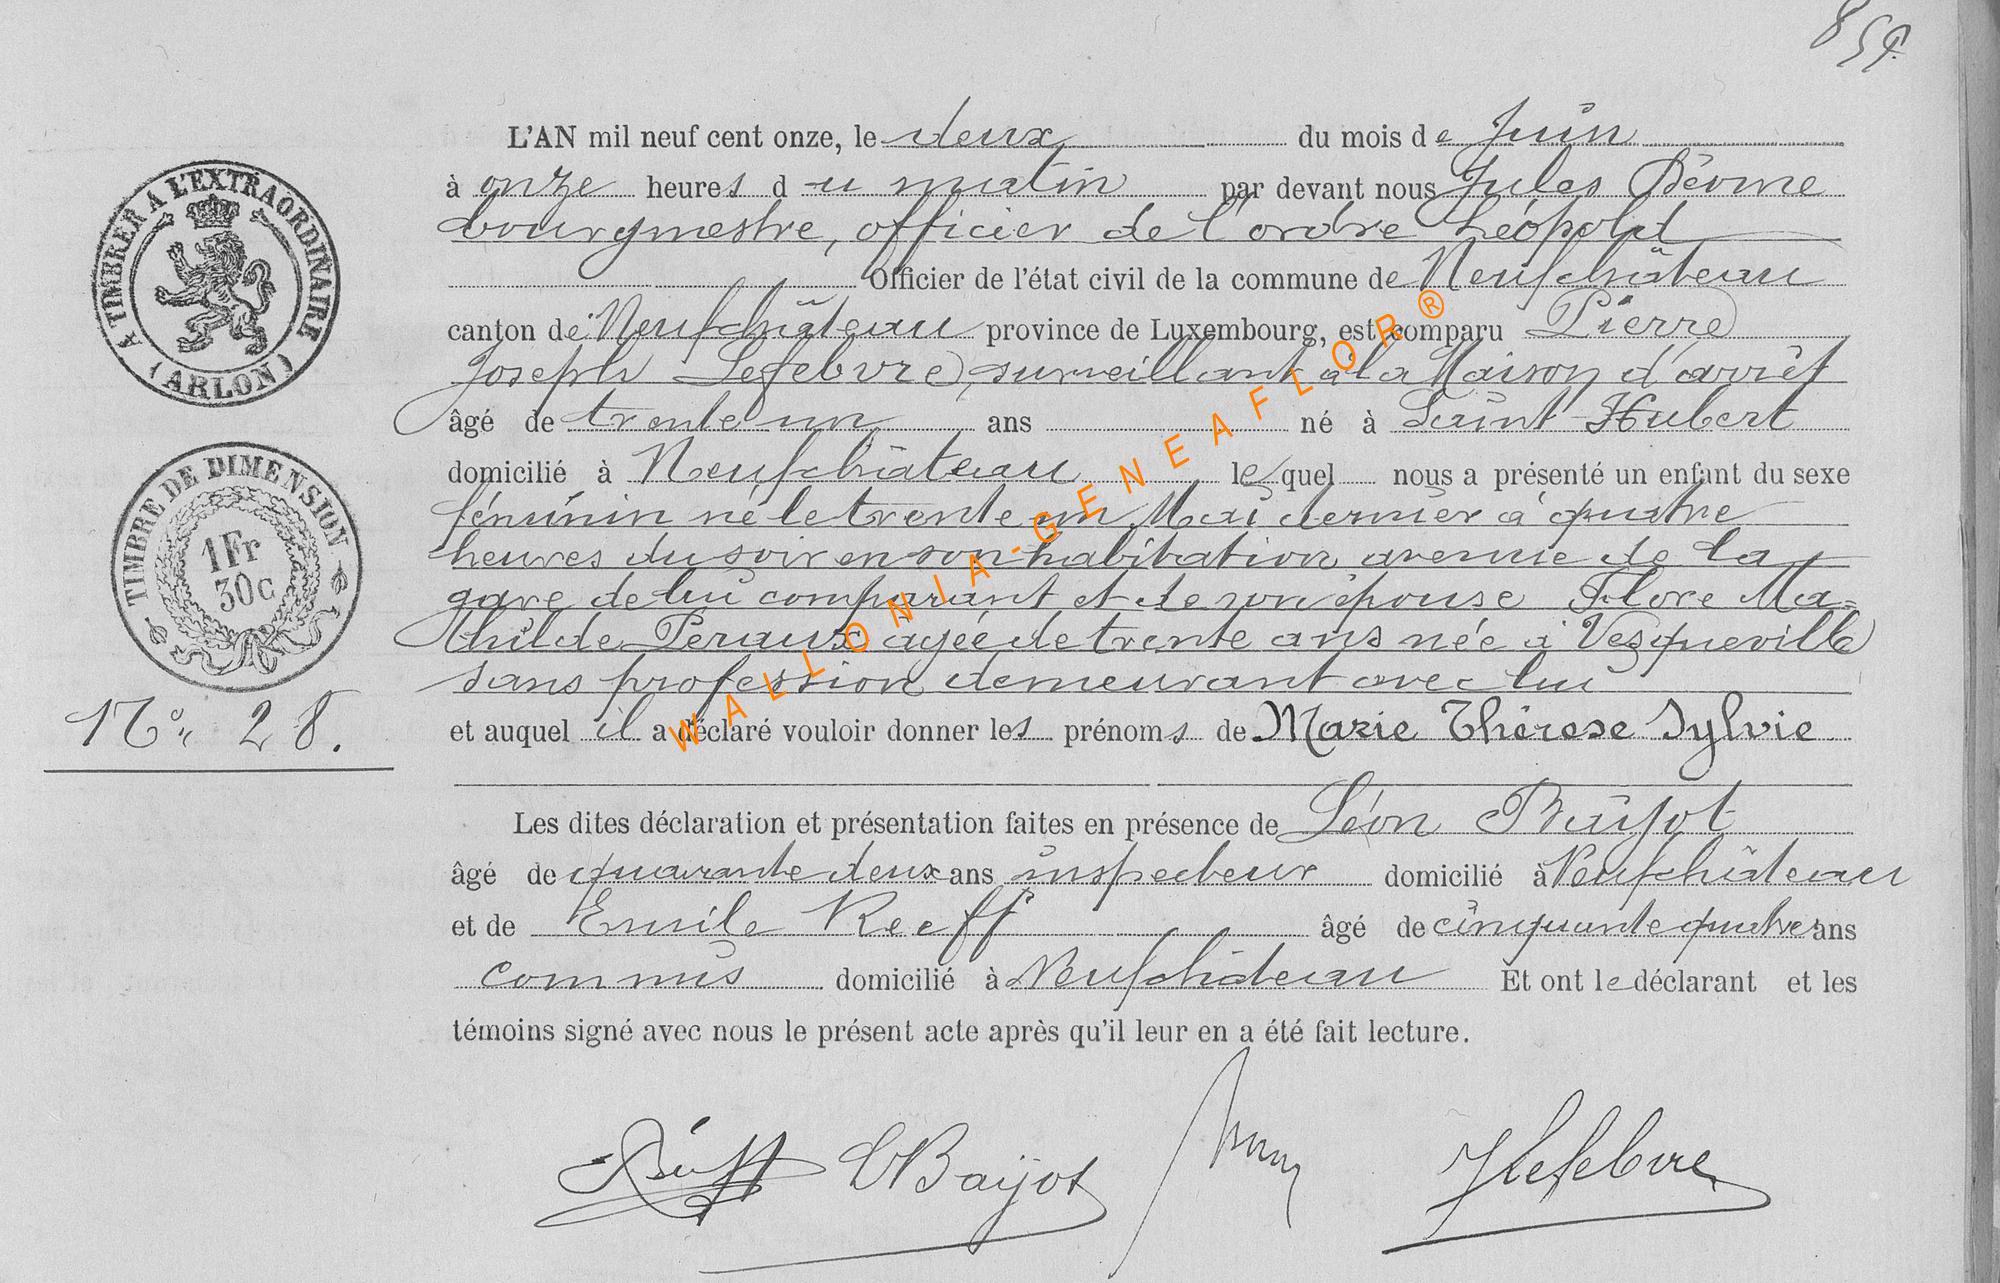 L'AN mil neuf cent onze, le deux du mois de Juin
à onze heures du matin par devant nous Jules
bourgmestre, officier de l'ordre Léopold
Officier de l'état civil de la commune de Neufchâteau
canton de Neufchâteau province de Luxembourg, est comparu Pierre
Joseph Lefebvre, surveillant à la Maison d'arrêt
âgé de trente un ans né à Saint Hubert
domicilié à Neufchâteau lequel nous a présenté un enfant du sexe
féminin né le trente un Mai dernier à quatre
heures du soir en son habitation avenue de la
gare de lui comparant et de son épouse Flore Ma-
thilde Peraux âgée de trente ans née à Vesqueville
sans profession demeurant avec lui
et auquel il a déclaré vouloir donner les prénoms de Marie Thérese Sylvie
Les dites déclaration et présentation faites en présence de Léon Baijot
âgé de quarante deux ans inspecteur domicilié à Neufchâteau
et de Emile Reeff âgé de cinquante quatre ans
commis domicilié à Neufchâteau Et ont le déclarant et les
témoins signé avec nous le présent acte après qu'il leur en a été fait lecture.
LBaijot
JLefebvre
A TIMBRER A L'EXTRAORDINAIRE
(ARLON)
TIMBRE DE DIMENSION
1Fr
30c
No. 28.
WALLONIA-GENEAFLOR®